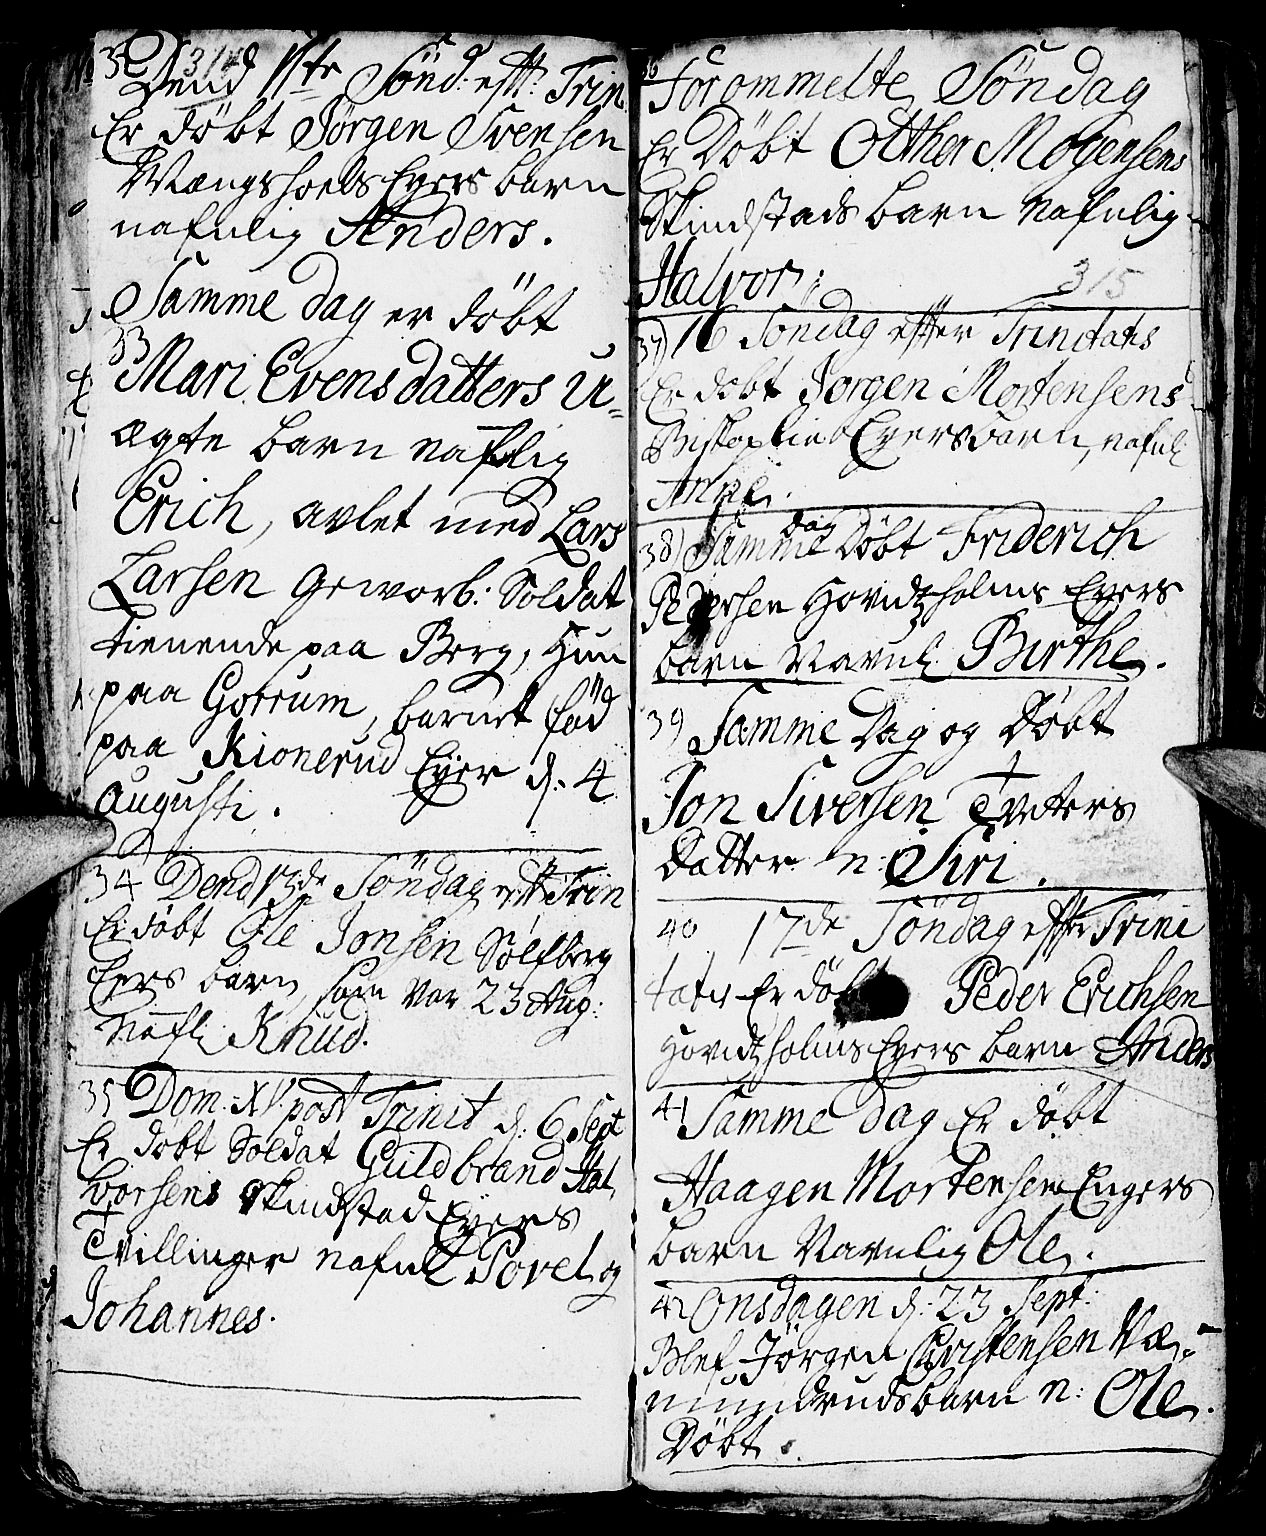 32 314
Dend 11te Sönd: efft: Trin
Er döbt Jörgen Svensen
Wangshoels Eyers barn
nafnlig Anders.
Samme dag er döbt
33
Mari Evensdatters U-
ægte barn nafnlig
Erich, avlet med Lars
Larsen Geworb: Soldat
tienende paa Berg, Hun
paa Gorrum, barnet föd
paa Kionerud Eyer d: 4
Augusti.
34 Dend 13de Söndag efft Trin
Er döbt Ole Jonsen Sölfberg
Eyers barn, som var 23 Aug:
Nafl: Knud.
35 Dom: XV. post Trinit d: 6 Sept
Er döbt Soldat Guldbrand Hal,
vorsens Skindstad Eyers
Tvillinger nafnl Povel og
Johannes.
36
Forommelte Söndag
Er Döbt Otther Mogensens
Skindstads barn nafnlig
Halvor: 315
37) 16 Söndag effter Trinitatis
Er döbt Jörgen Mortensens
Biskoplie Eyers barn, nafnl
Anne.
38) Samme dag Döbt Friderich
Pedersen Hovidtzholms Eyers
barn Navnl. Birthe.
39 Samme Dag og Döbt
Jon Siversen Tveters
Datter n: Siri.
40 17de Söndag effter Trini
tatis Er döbt Peder Erichsen
Hovidtzholms Eyers barn Anders
41 Samme dag Er döbt
Haagen Mortensen Engers
barn Navnlig Ole.
42 Onsdagen d: 23 Sept:
Blef Jörgen Christensen Væ-
mundruds barn n: Ole
Döbt.